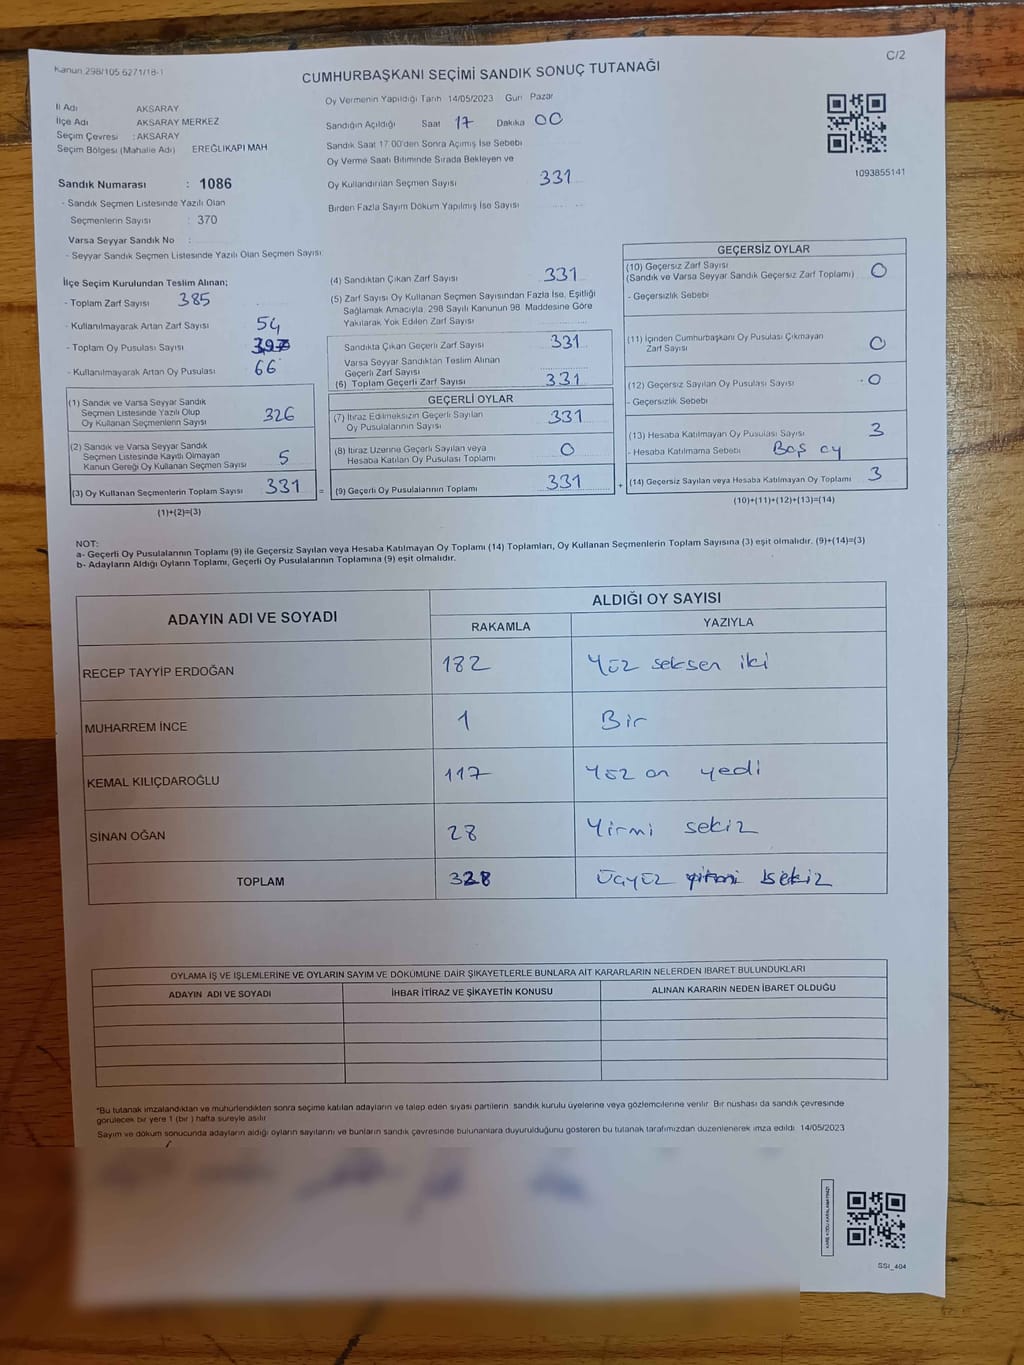 Kanun 298/105 6271/18-1
C/2
CUMHURBAŞKANI SEÇİMİ SANDIK SONUÇ TUTANAĞI
İl Adı AKSARAY
İlçe Adı AKSARAY MERKEZ
Seçim Çevresi : AKSARAY
Seçim Bölgesi (Mahalle Adı) EREĞLİKAPI MAH
Sandık Numarası : 1086
- Sandık Seçmen Listesinde Yazılı Olan
Seçmenlerin Sayısı : 370
Varsa Seyyar Sandık No :
- Seyyar Sandık Seçmen Listesinde Yazılı Olan Seçmen Sayısı
Oy Vermenin Yapıldığı Tarih 14/05/2023 Gün Pazar
Sandığın Açıldığı Saat 17 Dakika 00
Sandık Saat 17 00'den Sonra Açımış İse Sebebi
Oy Verme Saati Bitiminde Sırada Bekleyen ve
Oy Kullandırılan Seçmen Sayısı 331
Birden Fazla Sayım Döküm Yapılmış İse Sayısı
1093855141
İlçe Seçim Kurulundan Teslim Alınan;
- Toplam Zarf Sayısı 385
- Kullanılmayarak Artan Zarf Sayısı 54
- Toplam Oy Pusulası Sayısı 397
- Kullanılmayarak Artan Oy Pusulası 66
(1) Sandık ve Varsa Seyyar Sandık
Seçmen Listesinde Yazılı Olup
Oy Kullanan Seçmenlerin Sayısı 326
(2) Sandık ve Varsa Seyyar Sandık
Seçmen Listesinde Kayıtlı Olmayan
Kanun Gereği Oy Kullanan Seçmen Sayısı 5
(3) Oy Kullanan Seçmenlerin Toplam Sayısı 331 =
(1)+(2)=(3)
(4) Sandıktan Çıkan Zarf Sayısı 331
(5) Zarf Sayısı Oy Kullanan Seçmen Sayısından Fazla İse, Eşitliği
Sağlamak Amacıyla 298 Sayılı Kanunun 98 Maddesine Göre
Yakılarak Yok Edilen Zarf Sayısı
Sandıkta Çıkan Geçerli Zarf Sayısı 331
Varsa Seyyar Sandıktan Teslim Alınan
Geçerli Zarf Sayısı
(6) Toplam Geçerli Zarf Sayısı 331
GEÇERLİ OYLAR
(7) İtiraz Edilmeksizin Geçerli Sayılan
Oy Pusulalarının Sayısı 331
(8) İtiraz Üzerine Geçerli Sayılan veya
Hesaba Katılan Oy Pusulası Toplamı 0
(9) Geçerli Oy Pusulalarının Toplamı 331 +
GEÇERSİZ OYLAR
(10) Geçersiz Zarf Sayısı
(Sandık ve Varsa Seyyar Sandık Geçersiz Zarf Toplamı) 0
- Geçersizlik Sebebi
(11) İçinden Cumhurbaşkanı Oy Pusulası Çıkmayan
Zarf Sayısı 0
(12) Geçersiz Sayılan Oy Pusulası Sayısı 0
- Geçersizlik Sebebi
(13) Hesaba Katılmayan Oy Pusulası Sayısı 3
- Hesaba Katılmama Sebebi Boş oy
(14) Geçersiz Sayılan veya Hesaba Katılmayan Oy Toplamı 3
(10)+(11)+(12)+(13)=(14)
NOT:
a- Geçerli Oy Pusulalarının Toplamı (9) ile Geçersiz Sayılan veya Hesaba Katılmayan Oy Toplamı (14) Toplamları, Oy Kullanan Seçmenlerin Toplam Sayısına (3) eşit olmalıdır. (9)+(14)=(3)
b- Adayların Aldığı Oyların Toplamı, Geçerli Oy Pusulalarının Toplamına (9) eşit olmalıdır.
ADAYIN ADI VE SOYADI ALDIĞI OY SAYISI
RAKAMLA YAZIYLA
RECEP TAYYİP ERDOĞAN 182 Yüz seksen iki
MUHARREM İNCE 1 Bir
KEMAL KILIÇDAROĞLU 117 Yüz on yedi
SİNAN OĞAN 28 Yirmi sekiz
TOPLAM 328 Üçyüz yirmi sekiz
OYLAMA İŞ VE İŞLEMLERİNE VE OYLARIN SAYIM VE DÖKÜMÜNE DAİR ŞİKAYETLERLE BUNLARA AİT KARARLARIN NELERDEN İBARET BULUNDUKLARI
ADAYIN ADI VE SOYADI İHBAR İTİRAZ VE ŞİKAYETİN KONUSU ALINAN KARARIN NEDEN İBARET OLDUĞU
*Bu tutanak imzalandıktan ve mühürlendikten sonra seçime katılan adayların ve talep eden siyasi partilerin sandık kurulu üyelerine veya gözlemcilerine verilir Bir nüshası da sandık çevresinde
görülecek bir yere 1 (bir) hafta süreyle asılır
Sayım ve döküm sonucunda adayların aldığı oyların sayılarını ve bunların sandık çevresinde bulunanlara duyurulduğunu gösteren bu tutanak tarafımızdan düzenlenerek imza edildi 14/05/2023
SSI_404